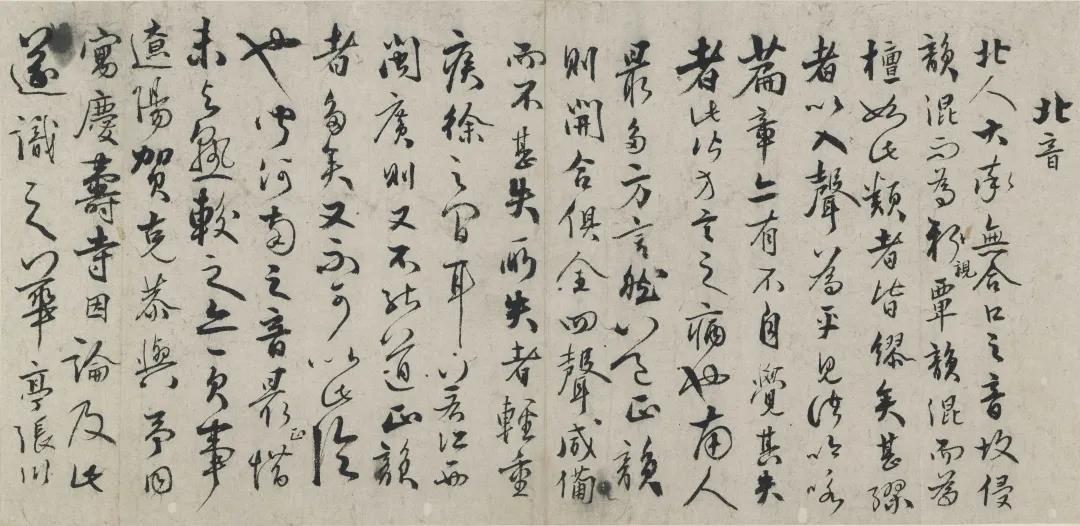 北音
北人大率無合口之音故侵
韻混而為親覃韻混而為
檀如此類者皆繆矣甚繆
者以入聲為平見諸吟咏
篇章亦有不自覺其失
者此方言之病也南人
最多方言然以之正韻
則開合俱全四聲咸備
而不甚失所失者輕重
疾徐之間耳若江西
閩廣則又不能道正韻
者多矣又不可以此論
也聞河南之音最正惜
未與較之亦一欠事
遼陽賀克恭與予同
寓慶壽寺因論及此
遂識之華亭張